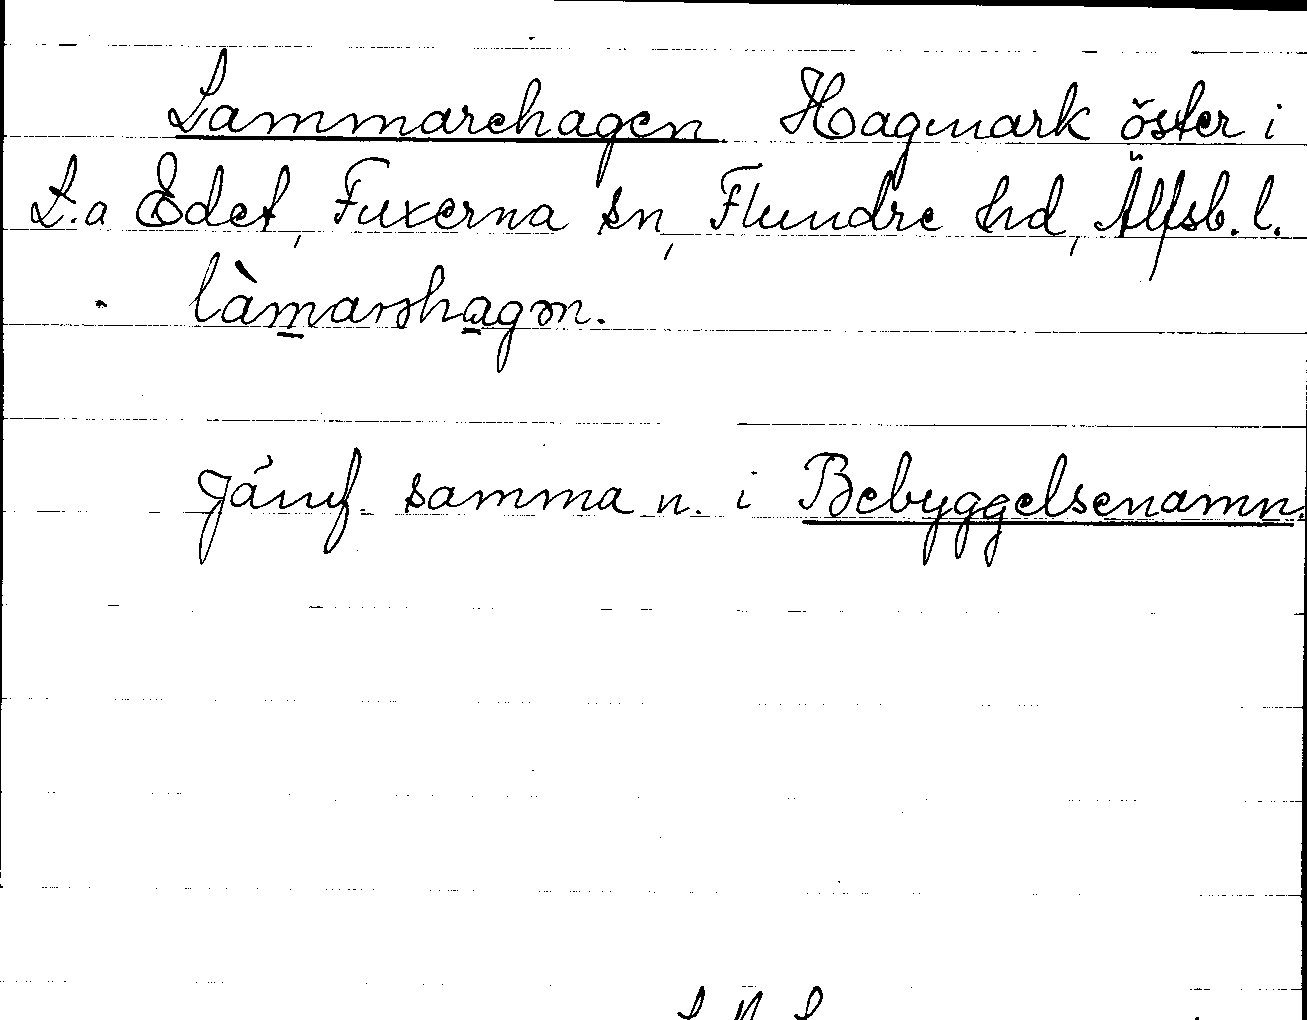 Lammarehagen Hagmark öster i
L:a Edet, Fuxerna sn, Flundre hd, Älfsb. l.
làmarəhagən.
Jämf. samma n. i Bebyggelsenamn.